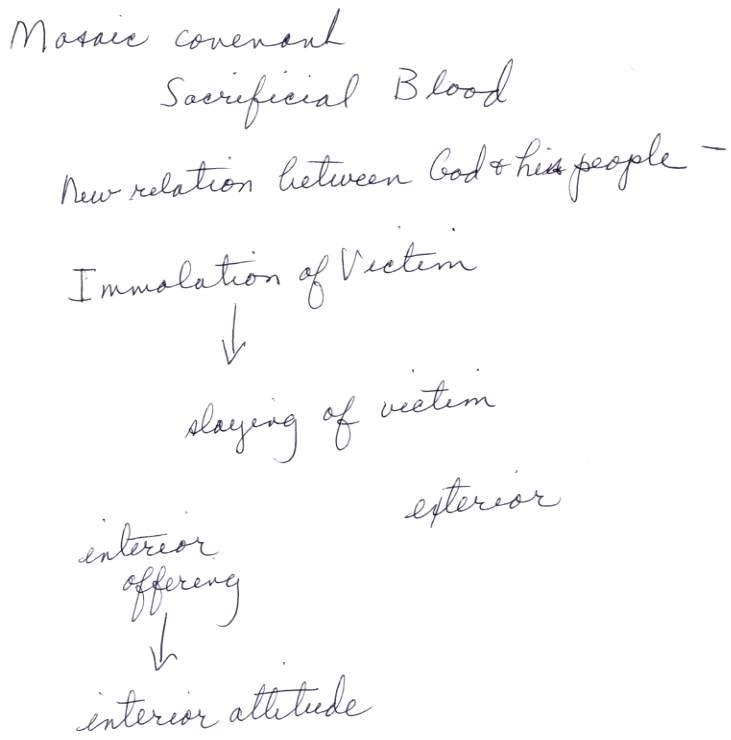 Mosaic covenant
Sacrificial Blood
New relation between God & his people –
Immolation of Victim
↓
slaying of victim
exterior
interior
offering
↓
interior attitude